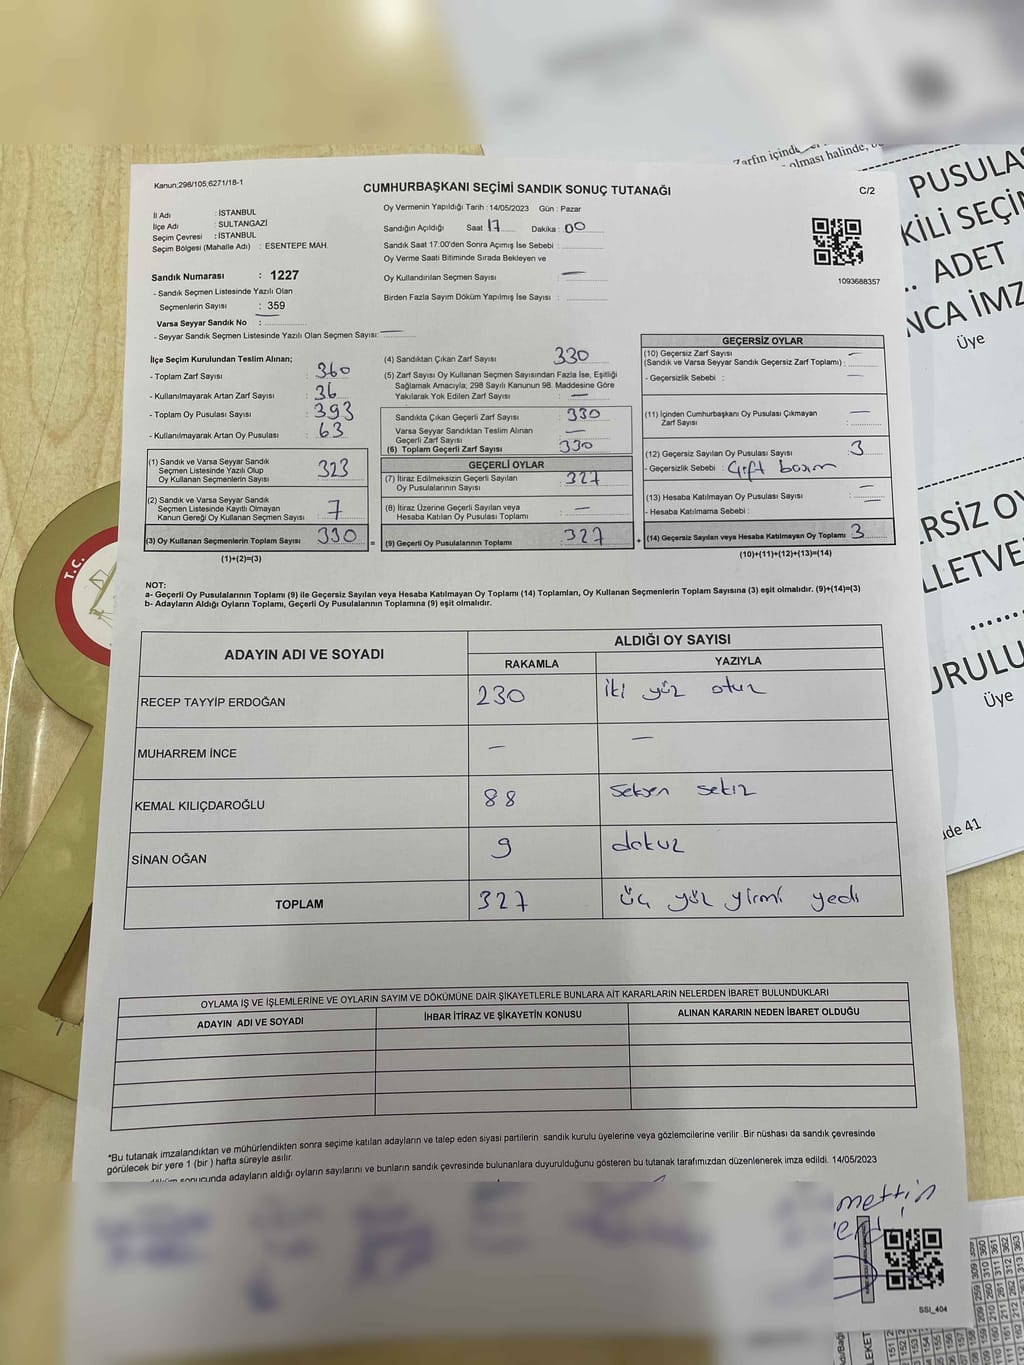 Zarfın içinde
olması halinde,
PUSULA
KİLİ SEÇİM
ADET
NCA İMZ
Üye
Kanun:298/105;6271/18-1
CUMHURBAŞKANI SEÇİMİ SANDIK SONUÇ TUTANAĞI
C/2
İl Adı : İSTANBUL
İlçe Adı : SULTANGAZİ
Seçim Çevresi : İSTANBUL
Seçim Bölgesi (Mahalle Adı) : ESENTEPE MAH.
Sandık Numarası : 1227
- Sandık Seçmen Listesinde Yazılı Olan
Seçmenlerin Sayısı : 359
Varsa Seyyar Sandık No : —
- Seyyar Sandık Seçmen Listesinde Yazılı Olan Seçmen Sayısı: —
Oy Vermenin Yapıldığı Tarih : 14/05/2023 Gün : Pazar
Sandığın Açıldığı Saat 17 Dakika : 00
Sandık Saat 17:00'den Sonra Açımış İse Sebebi :
Oy Verme Saati Bitiminde Sırada Bekleyen ve
Oy Kullandırılan Seçmen Sayısı —
Birden Fazla Sayım Döküm Yapılmış İse Sayısı :
1093688357
İlçe Seçim Kurulundan Teslim Alınan;
- Toplam Zarf Sayısı : 360
- Kullanılmayarak Artan Zarf Sayısı : 36
- Toplam Oy Pusulası Sayısı : 393
- Kullanılmayarak Artan Oy Pusulası : 63
(1) Sandık ve Varsa Seyyar Sandık
Seçmen Listesinde Yazılı Olup
Oy Kullanan Seçmenlerin Sayısı : 323
(2) Sandık ve Varsa Seyyar Sandık
Seçmen Listesinde Kayıtlı Olmayan
Kanun Gereği Oy Kullanan Seçmen Sayısı : 7
(3) Oy Kullanan Seçmenlerin Toplam Sayısı : 330
(1)+(2)=(3)
=
(4) Sandıktan Çıkan Zarf Sayısı 330
(5) Zarf Sayısı Oy Kullanan Seçmen Sayısından Fazla İse, Eşitliği
Sağlamak Amacıyla; 298 Sayılı Kanunun 98. Maddesine Göre
Yakılarak Yok Edilen Zarf Sayısı : —
Sandıkta Çıkan Geçerli Zarf Sayısı : 330
Varsa Seyyar Sandıktan Teslim Alınan
Geçerli Zarf Sayısı : —
(6) Toplam Geçerli Zarf Sayısı : 330
GEÇERLİ OYLAR
(7) İtiraz Edilmeksizin Geçerli Sayılan
Oy Pusulalarının Sayısı : 327
(8) İtiraz Üzerine Geçerli Sayılan veya
Hesaba Katılan Oy Pusulası Toplamı : —
(9) Geçerli Oy Pusulalarının Toplamı : 327
+
GEÇERSİZ OYLAR
(10) Geçersiz Zarf Sayısı
(Sandık ve Varsa Seyyar Sandık Geçersiz Zarf Toplamı) : —
- Geçersizlik Sebebi : —
(11) İçinden Cumhurbaşkanı Oy Pusulası Çıkmayan
Zarf Sayısı : —
(12) Geçersiz Sayılan Oy Pusulası Sayısı : 3
- Geçersizlik Sebebi : Çift basım
(13) Hesaba Katılmayan Oy Pusulası Sayısı : —
- Hesaba Katılmama Sebebi : —
(14) Geçersiz Sayılan veya Hesaba Katılmayan Oy Toplamı 3
(10)+(11)+(12)+(13)=(14)
NOT:
a- Geçerli Oy Pusulalarının Toplamı (9) ile Geçersiz Sayılan veya Hesaba Katılmayan Oy Toplamı (14) Toplamları, Oy Kullanan Seçmenlerin Toplam Sayısına (3) eşit olmalıdır. (9)+(14)=(3)
b- Adayların Aldığı Oyların Toplamı, Geçerli Oy Pusulalarının Toplamına (9) eşit olmalıdır.
ADAYIN ADI VE SOYADI
ALDIĞI OY SAYISI
RAKAMLA YAZIYLA
RECEP TAYYİP ERDOĞAN 230 iki yüz otuz
MUHARREM İNCE — —
KEMAL KILIÇDAROĞLU 88 Seksen sekiz
SİNAN OĞAN 9 dokuz
TOPLAM 327 üç yüz yirmi yedi
OYLAMA İŞ VE İŞLEMLERİNE VE OYLARIN SAYIM VE DÖKÜMÜNE DAİR ŞİKAYETLERLE BUNLARA AİT KARARLARIN NELERDEN İBARET BULUNDUKLARI
ADAYIN ADI VE SOYADI İHBAR İTİRAZ VE ŞİKAYETİN KONUSU ALINAN KARARIN NEDEN İBARET OLDUĞU
*Bu tutanak imzalandıktan ve mühürlendikten sonra seçime katılan adayların ve talep eden siyasi partilerin sandık kurulu üyelerine veya gözlemcilerine verilir .Bir nüshası da sandık çevresinde
görülecek bir yere 1 (bir ) hafta süreyle asılır.
sonucunda adayların aldığı oyların sayılarını ve bunların sandık çevresinde bulunanlara duyurulduğunu gösteren bu tutanak tarafımızdan düzenlenerek imza edildi. 14/05/2023
mettin
SSI_404
T.C.
RSİZ OY
LLETVE
URULU
Üye
de 41